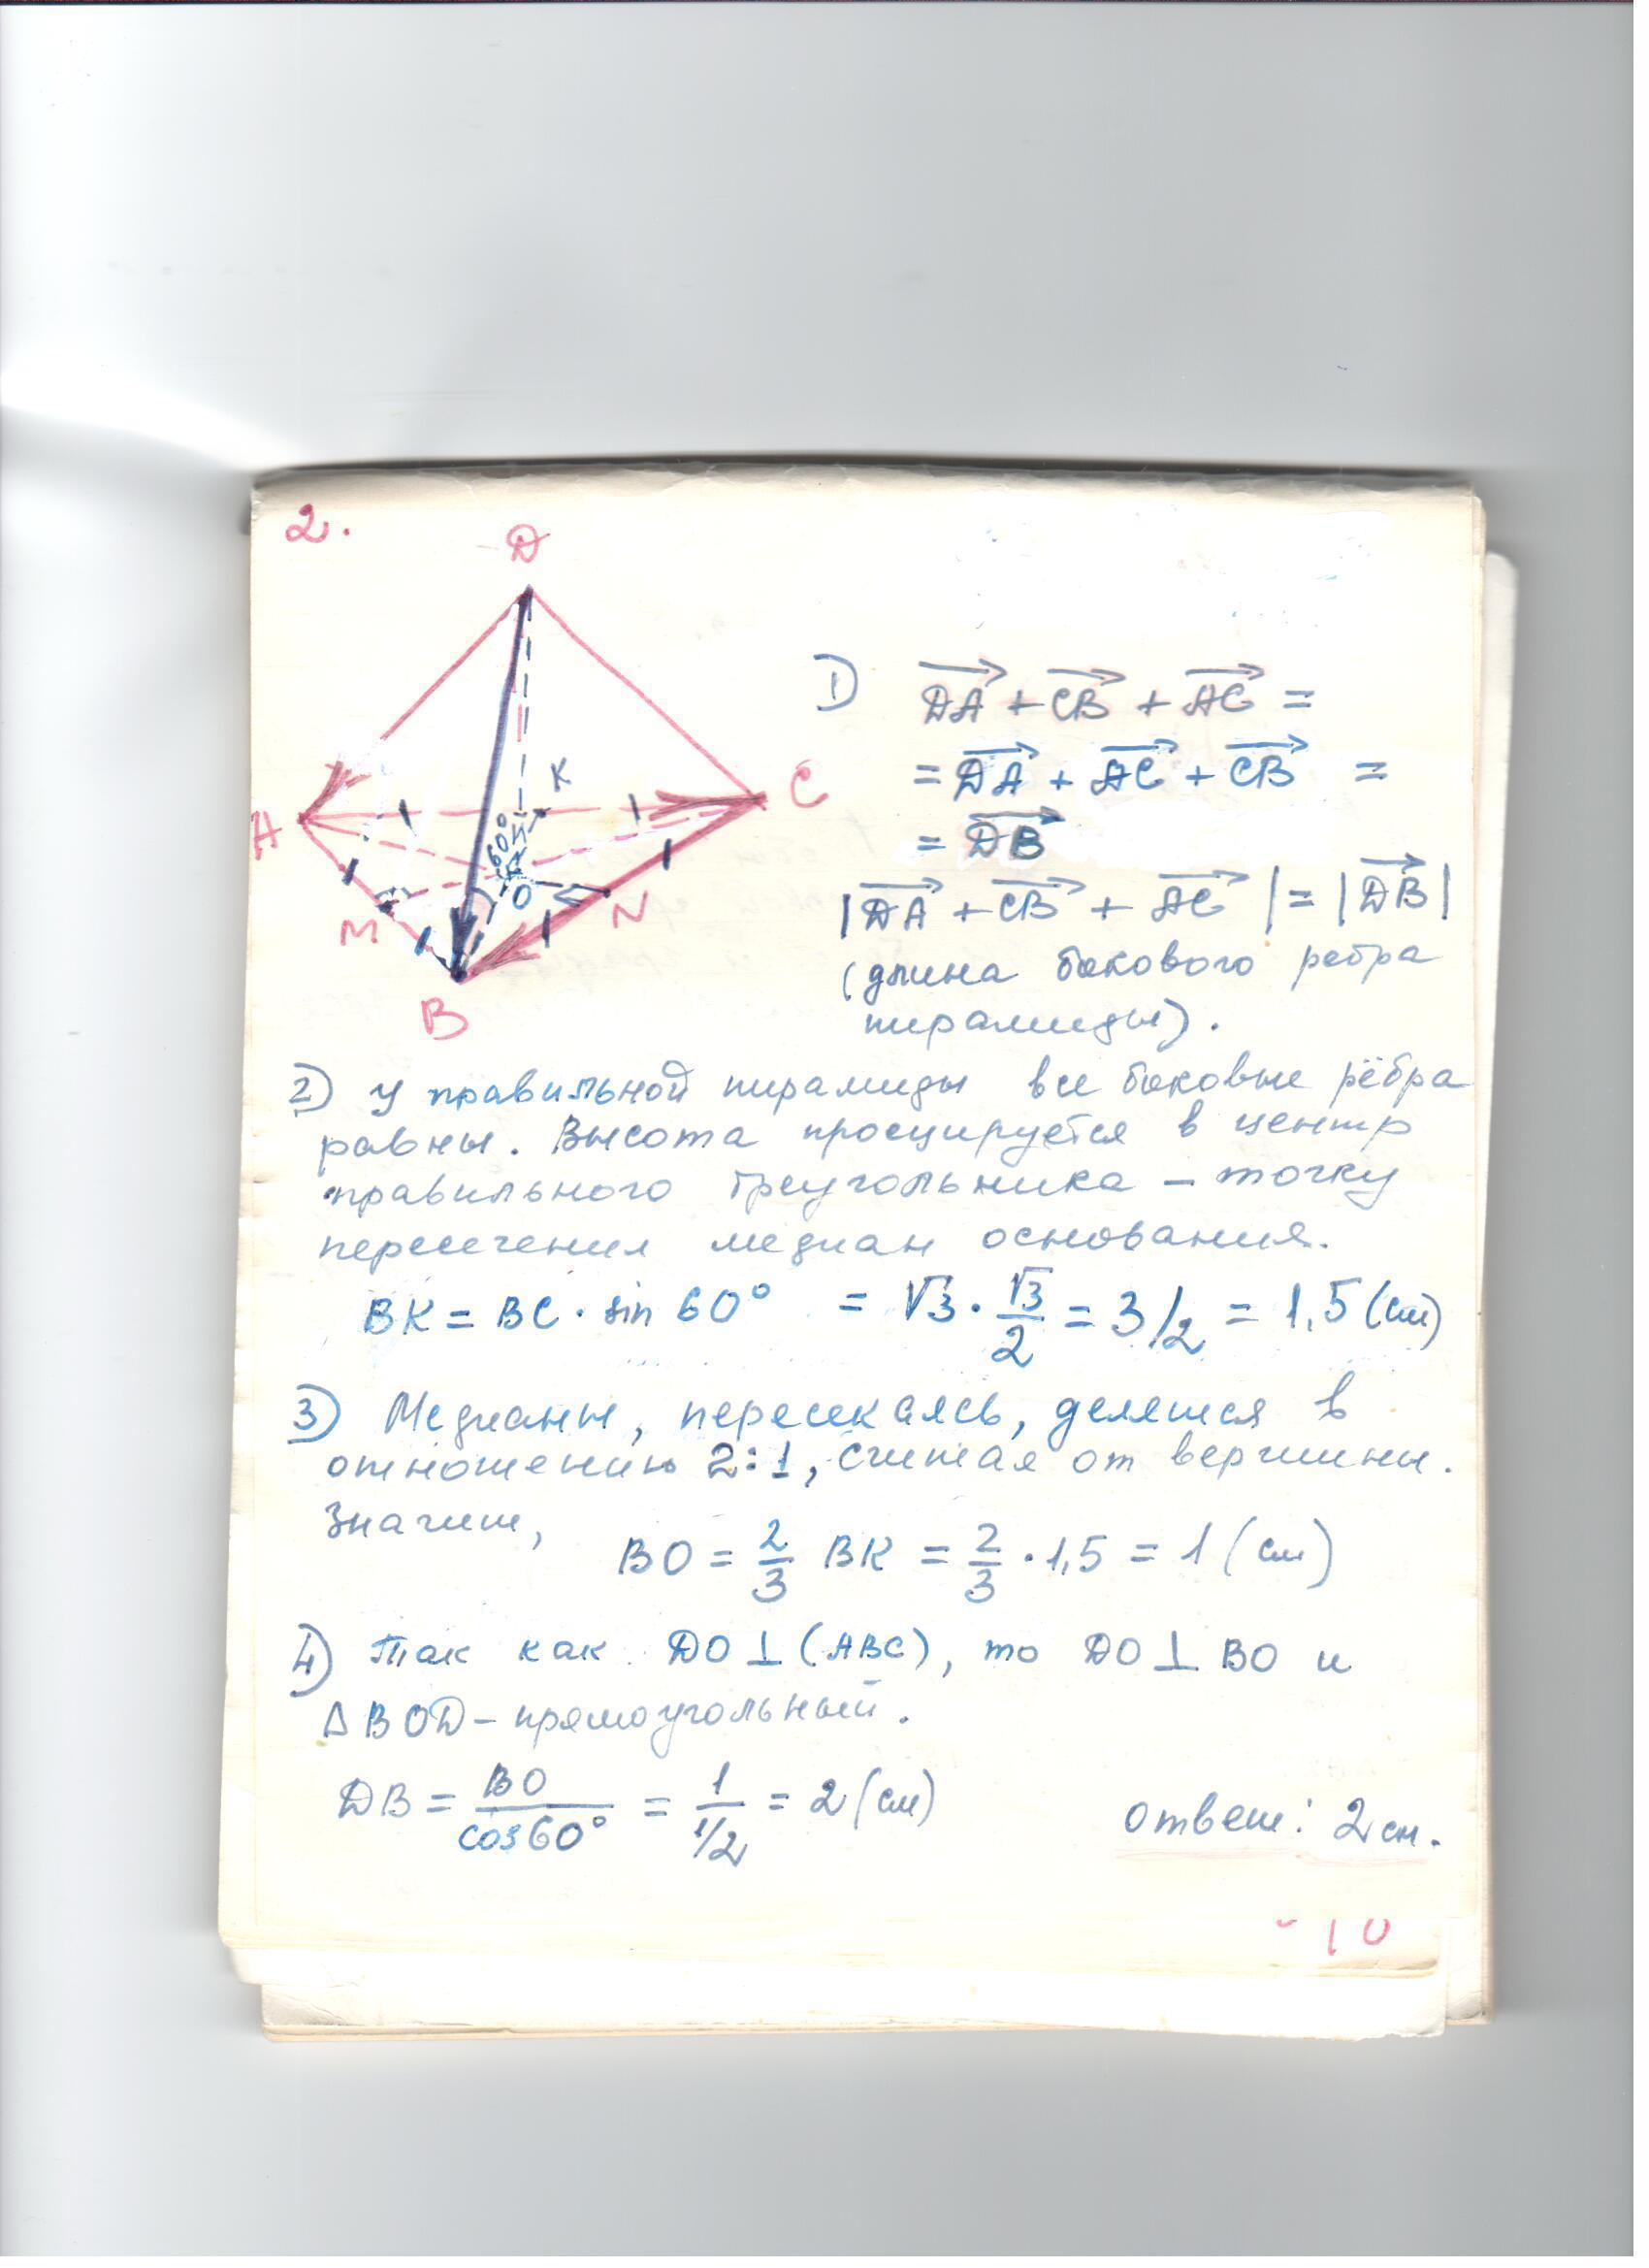 2.
D
K
C
A
60°
O
M
N
B
1) DA + CB + AC =
= DA + AC + CB =
= DB
|DA + CB + AC| = |DB|
(длина бокового ребра
пирамиды).
2) У правильной пирамиды все боковые рёбра
равны. Высота проецируется в центр
правильного треугольника – точку
пересечения медиан основания.
BK = BC · sin 60° = √3 · √3/2 = 3/2 = 1,5 (см)
3) Медианы, пересекаясь, делятся в
отношению 2:1, считая от вершины.
Значит,
BO = 2/3 BK = 2/3 · 1,5 = 1 (см)
4) Так как DO ⊥ (ABC), то DO ⊥ BO и
Δ BOD – прямоугольный.
DB = BO/cos 60° = 1/1/2 = 2 (см)
Ответ: 2 см.